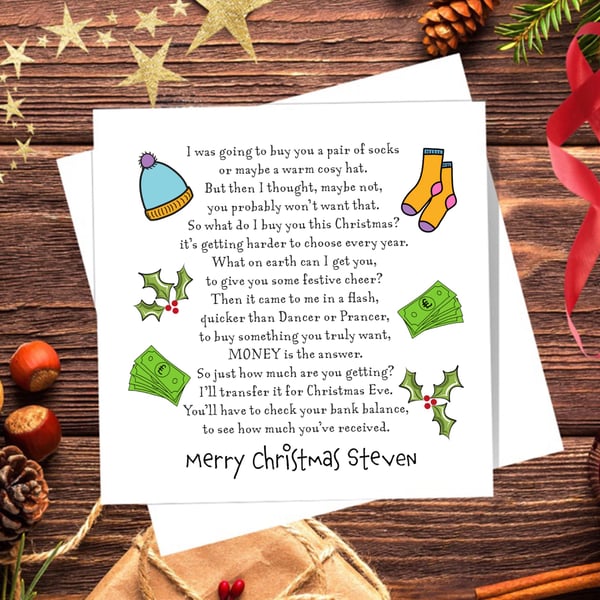 I was going to buy you a pair of socks
or maybe a warm cosy hat.
But then I thought, maybe not,
you probably won't want that.
So what do I buy you this Christmas?
it's getting harder to choose every year.
What on earth can I get you,
to give you some festive cheer?
Then it came to me in a flash,
quicker than Dancer or Prancer,
to buy something you truly want,
MONEY is the answer.
So just how much are you getting?
I'll transfer it for Christmas Eve.
You'll have to check your bank balance,
to see how much you've received.
Merry Christmas Steven